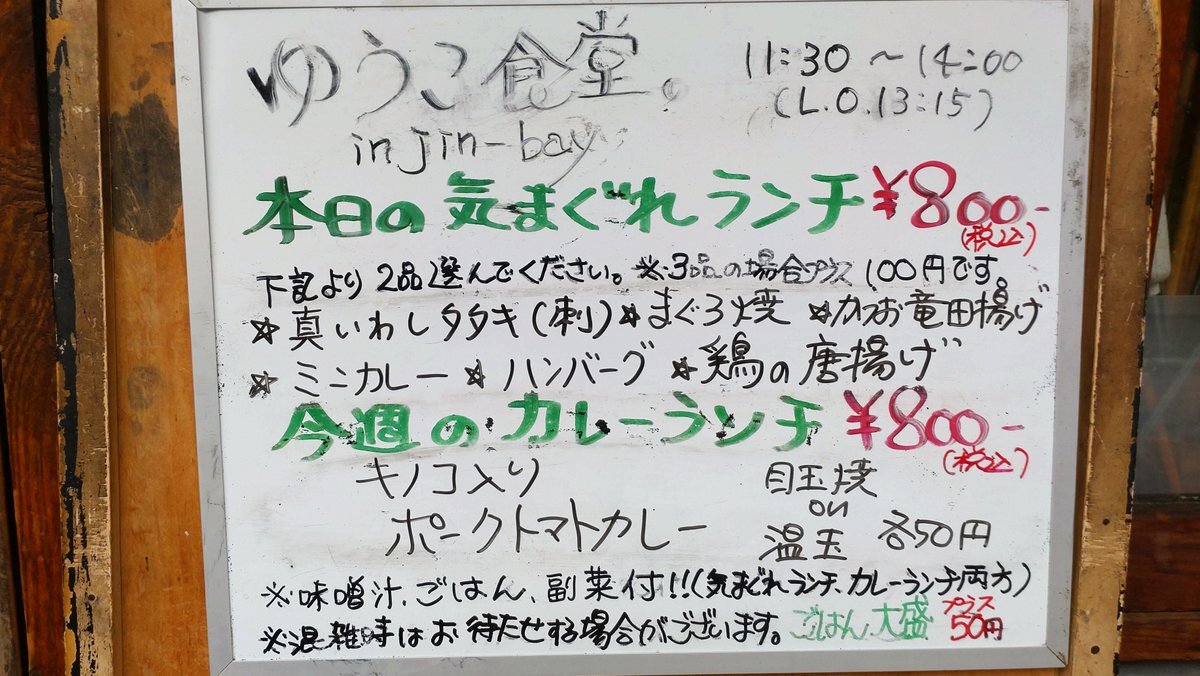 ゆうこ食堂。
in jin-bay
11:30 ~ 14:00
(L.O.13:15)
本日の気まぐれランチ ¥800-
(税込)
下記より2品選んでください。※3品の場合プラス100円です。
★真いわしタタキ(刺)★まぐろ焼 ★かつお竜田揚げ
★ミニカレー★ハンバーグ ★鶏の唐揚げ
今週のカレーランチ ¥800-
(税込)
キノコ入り
ポークトマトカレー
目玉焼
on
温玉 各50円
※味噌汁、ごはん、副菜付!!(気まぐれランチ、カレーランチ両方)
※混雑時はお待たせする場合がございます。ごはん大盛 プラス50円